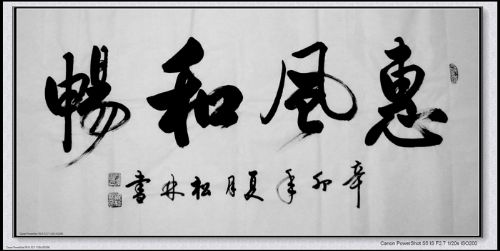 惠風和暢
辛卯年夏月松林書
Canon PowerShot S5 IS F2.7 1/20s ISO200